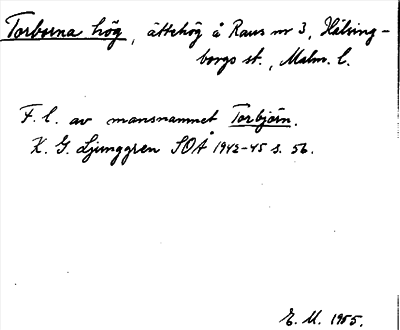 Torborna hög, ättehög å Raus nr 3, Hälsing-
borgs st., Malm. l.
F. l. av mansnamnet Torbjörn.
K. G. Ljunggren SOÅ 1942-45 s. 56.
E. M. 1955.